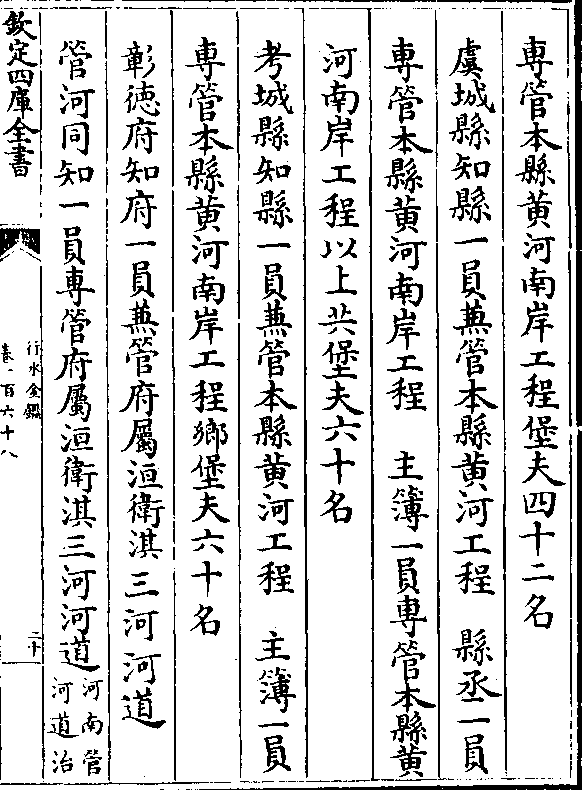 專管本縣黄河南岸工程堡夫四十二名
虞城縣知縣一員兼管本縣黄河工程　縣丞一員
專管本縣黄河南岸工程　主簿一員專管本縣黄
河南岸工程以上共堡夫六十名
考城縣知縣一員兼管本縣黄河工程　主簿一員
專管本縣黄河南岸工程鄉堡夫六十名
彰德府知府一員兼管府屬洹衛淇三河河道
管河同知一員專管府屬洹衛淇三河河道河南管
河道治
欽定四庫全書
行水金鑑
卷一百六十八
二十